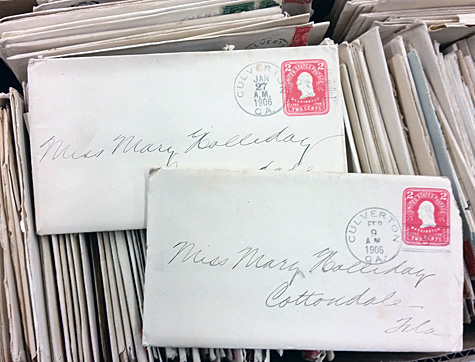 CULVERTON
JAN
27
A.M.
1906
GA.
2 UNITED STATES POSTAGE 2
WASHINGTON
TWO CENTS
Miss Mary Holliday
CULVERTON
FEB
9
A.M.
1906
GA.
2 UNITED STATES POSTAGE 2
WASHINGTON
TWO CENTS
Miss Mary Holliday
Cottondale
Fla